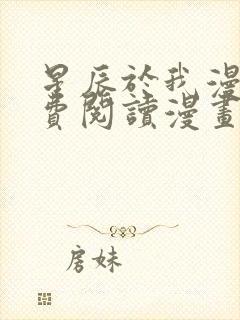 星辰於我漫
費閱讀漫畫
房妹